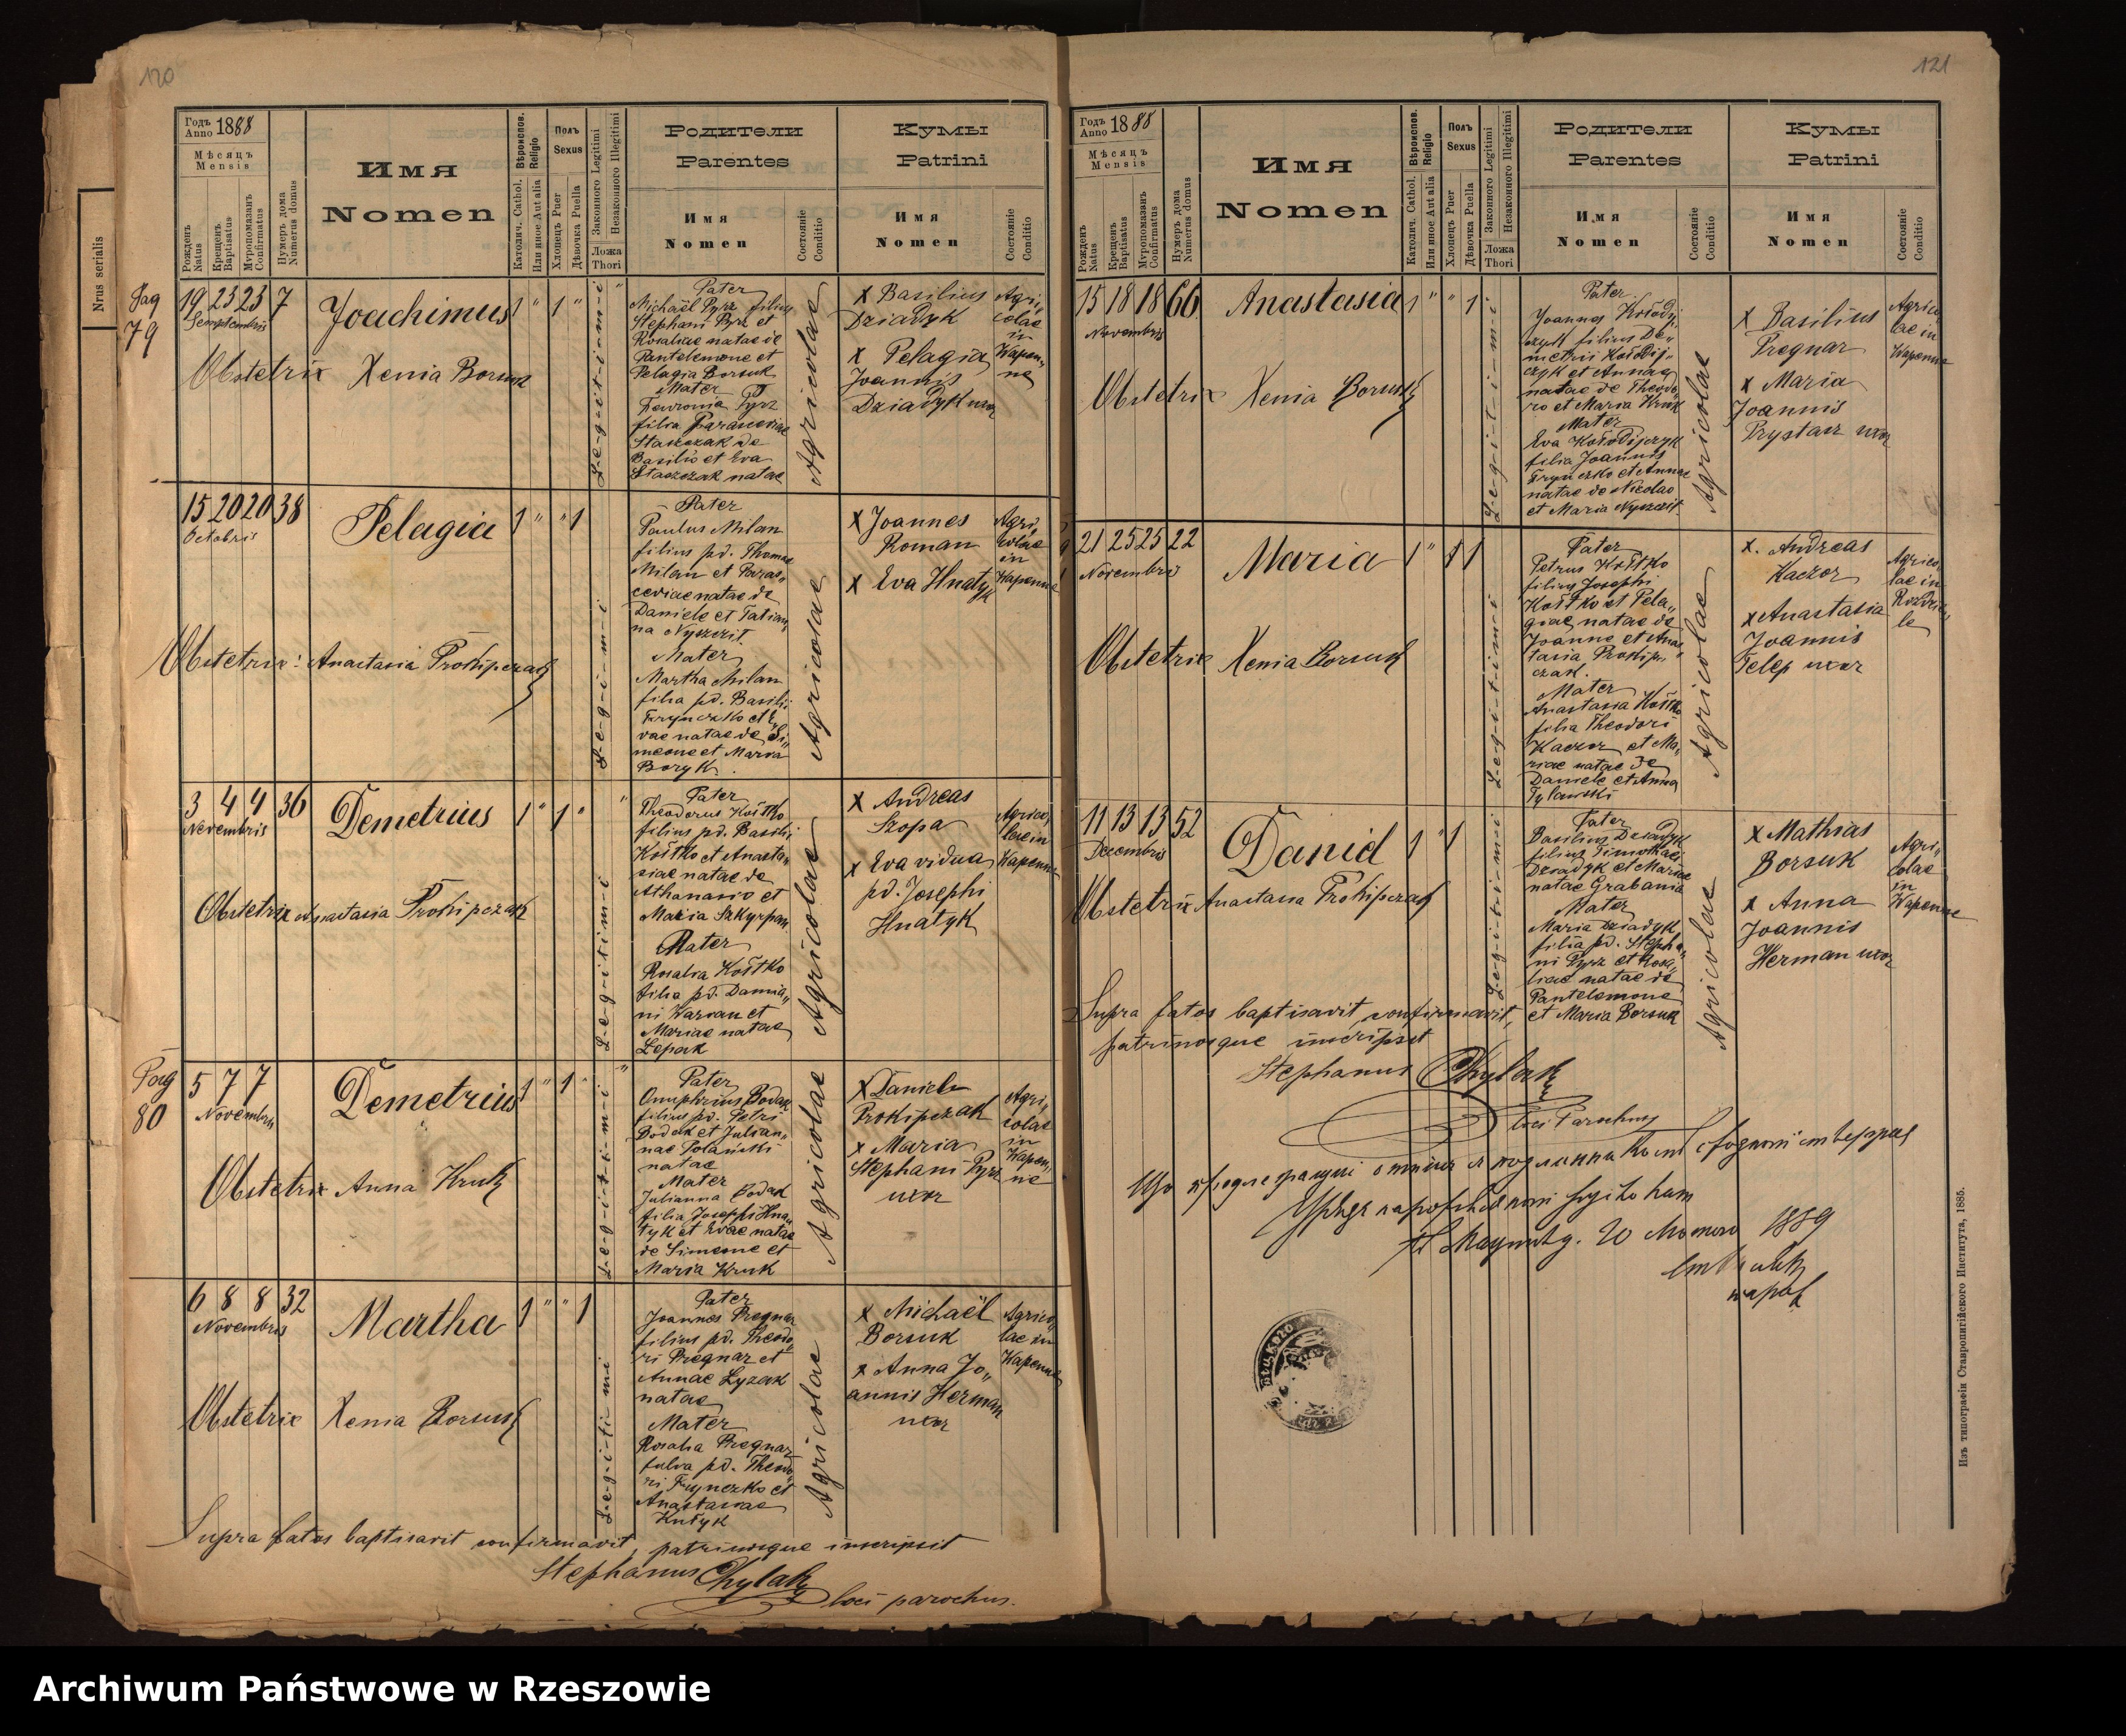 120
Годъ Anno 1888
Мѣсяцъ
Mensis
Рожденъ Natus
Крещенъ Baptisatus
Мѵропомазанъ Confirmatus
Нумеръ дома Numerus domus
Имя
Nomen
Вѣроиспов. Religio
Католич. Cathol.
Или иное Aut alia
Полъ
Sexus
Хлопецъ Puer
Дѣвочка Puella
Законного Legitimi
Незаконного Illegitimi
Ложа
Thori
Родители
Parentes
Имя
Nomen
Состояніе
Conditio
Кумы
Patrini
Имя
Nomen
Состояніе
Conditio
Nrus serialis
Pag
79
19 23 23 7
Septembris
Joachimus
1 " 1 "
Obstetrix Xenia Borsuk
Pater
Michaël Pyrz filius
Stephani Pyrz et
Rosaliae natae de
Pantelemone et
Pelagia Borsuk
Mater
Fewronia Pyrz
filia Parasceviae
Staszczak de
Basilio et Eva
Staszczak natae
Agricolae
x Basilius
Dziadyk
x Pelagia
Joannis
Dziadyk uxor
Agri„
colae
in
Wapen„
ne
15 20 20 38
Octobris
Pelagia
1 " " 1
Obstetrix: Anastasia Prokipczak
Pater
Paulus Milan
filius pd. Thomae
Milan et Paras„
ceviae natae de
Daniele et Tatian„
na Nyszczit
Mater
Martha Milan
filia pd. Basilii
Frynczko et E„
vae natae de Si„
meone et Maria
Boryk.
Agricolae
x Joannes
Roman
x Eva Hnatyk
Agri„
colae
in
Wapenne
3 4 4 36
Novembris
Demetrius
1 " 1 "
Obstetrix Anastasia Prokipczak
Pater
Theodorus Kostko
filius pd. Basilii
Kostko et Anasta„
siae natae de
Athanasio et
Maria Szkyrpan
Mater
Rosalia Kostko
filia pd. Damia„
ni Warian et
Mariae natae
Lepak
Agricolae
x Andreas
Szopa
x Eva vidua
pd. Josephi
Hnatyk
Agrico„
lae in
Wapenne
Pag
80
5 7 7
Novembris
Demetrius
1 " 1
Obstetrix Anna Kruk
Pater
Onuphrius Dodak
filius pd. Petri
Dodak et Julian„
nae Polański
natae
Mater
Julianna Dodak
filia Josephi Hna„
tyk et Evae natae
de Simeone et
Maria Kruk
Agricolae
x Daniel
Prokipczak
x Maria
Stephani Pyrz
uxor
Agri„
colae
in
Wapen„
ne
6 8 8 32
Novembris
Martha
1 " " 1
Obstetrix Xenia Borsuk
Pater
Joannes Pregnar
filius pd. Theodo„
ri Pregnar et
Annae Lyzak
natae
Mater
Rosalia Pregnar
filia pd. Theodo„
ri Frynczko et
Anastasiae
Kutyk
Agricolae
x Michaël
Borsuk
x Anna Jo„
annis Herman
uxor
Agrico„
lae in
Wapenne
Supra fatos baptisavit confirmavit, patrinosque inscripsit
Stephanus Chylak
loci parochus.
121
Годъ Anno 1888
Мѣсяцъ
Mensis
Рожденъ Natus
Крещенъ Baptisatus
Мѵропомазанъ Confirmatus
Нумеръ дома Numerus domus
Имя
Nomen
Вѣроиспов. Religio
Католич. Cathol.
Или иное Aut alia
Полъ
Sexus
Хлопецъ Puer
Дѣвочка Puella
Законного Legitimi
Незаконного Illegitimi
Ложа
Thori
Родители
Parentes
Имя
Nomen
Состояніе
Conditio
Кумы
Patrini
Имя
Nomen
Состояніе
Conditio
15 18 18 66
Novembris
Anastasia
1 " " 1
Obstetrix Xenia Borsuk
L-e-g-i-t-i-m-i
Pater
Joannes Kołodij„
czyk filius De„
metrii Kołodij„
czyk et Annae
natae de Theodo„
ro et Maria Kruk
Mater
Eva Kołodijczyk
filia Joannis
Frynczko et Annae
natae de Nicolao
et Maria Nyszczit
Agricolae
x Basilius
Pregnar
x Maria
Joannis
Prystasz uxor
Agrico„
lae in
Wapenne
21 25 25 22
Novembris
Maria
1 " 1 1
Obstetrix Xenia Borsuk
Pater
Petrus Kostko
filius Josephi
Kostko et Pela„
giae natae de
Joanne et Anas„
tasia Prokip„
czak.
Mater
Anastasia Kostko
filia Theodori
Kaczor et Ma„
riae natae de
Daniele et Anna
Tylawski
Agricolae
x. Andreas
Kaczor
x Anastasia
Joannis
Telep uxor
Agrico„
lae in
Rozdzie„
le
11 13 13 52
Decembris
Daniel
1 " 1
Obstetrix Anastasia Prokipczak
Pater
Basilius Dziadyk
filius Timothaei
Dziadyk et Mariae
natae Grabania
Mater
Maria Dziadyk
filia pd. Stepha„
ni Pyrz et Rosa„
liae natae de
Pantelemone
et Maria Borsuk
Agricolae
x Mathias
Borsuk
x Anna
Joannis
Herman uxor
Agri„
colae
in
Wapenne
Supra fatos baptisavit, confirmavit,
patrinosque inscripsit
Stephanus Chylak
loci Parochus
20 1889
Изъ типографіи Ставропигійского Института, 1885.
Archiwum Państwowe w Rzeszowie